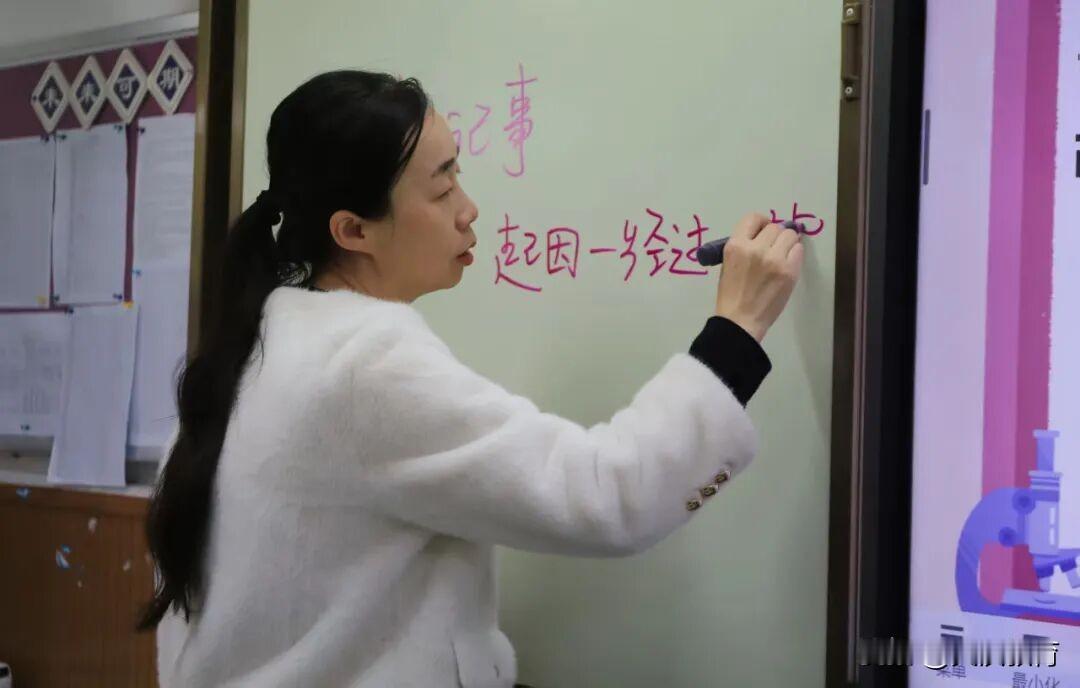 未来可期
记事
起因一经过
菜单
最小化